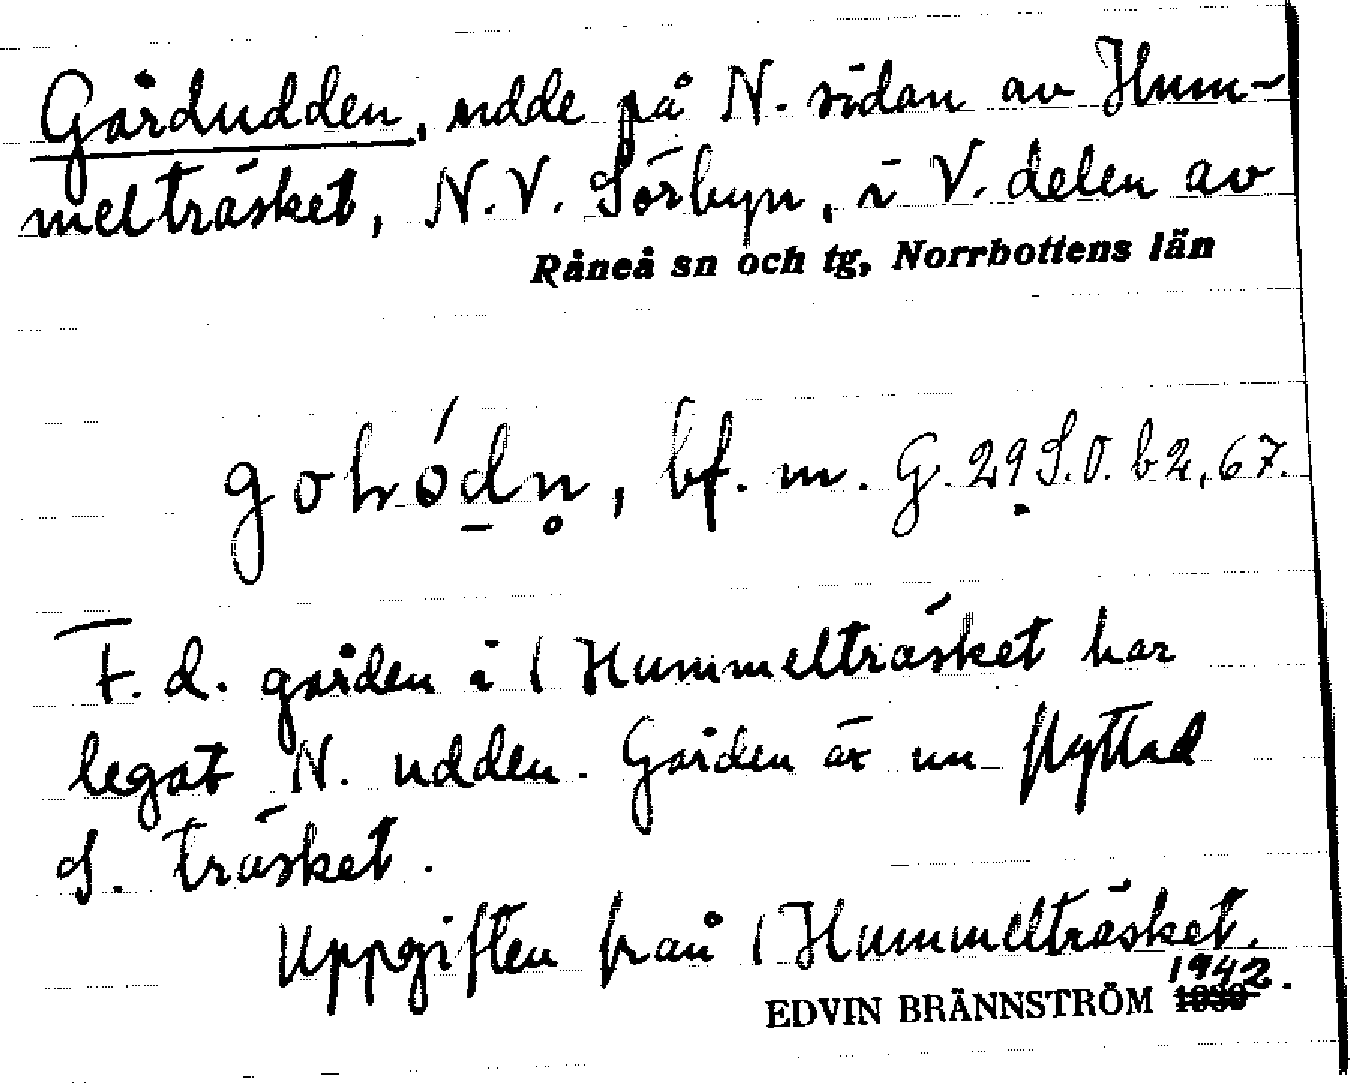 Gårdudden, udde på N. sidan av Hum-
melträsket, N.V. Sörbyn, i V. delen av
Råneå sn och tg, Norrbottens län
gohódn, bf. m. G. 29 S.O. b 2, 67.
F. d. gården i / Hummelträsket har
legat N. udden. Gården är nu flyttad
S. träsket.
Uppgiften från / Hummelträsket.
1942.
EDVIN BRÄNNSTRÖM 1930